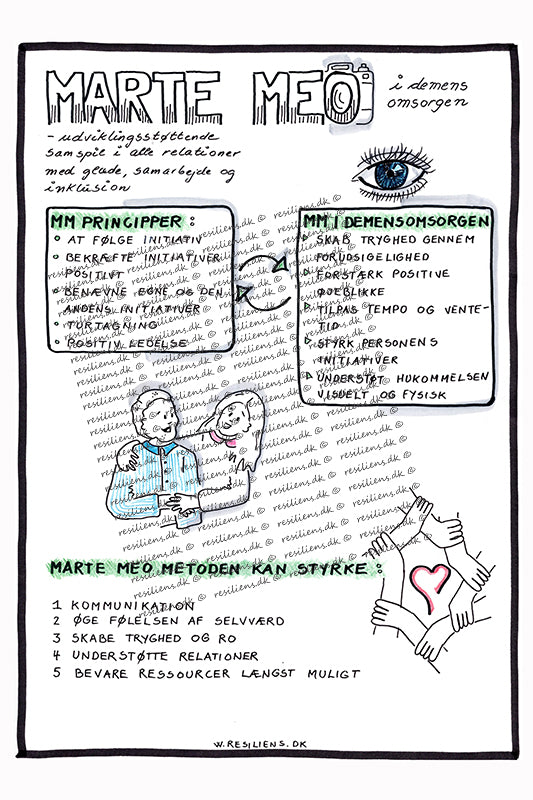 MARTE MEO
i demens
omsorgen
- udviklingsstøttende
samspil i alle relationer
med glæde, samarbejde og
inklusion
MM PRINCIPPER:
AT FØLGE INITIATIV
BEKRÆFTE INITIATIVER
POSITIVT
BENÆVNE EGNE OG DEN
ANDENS INITIATIVER
TURTAGNING
POSITIV LEDELSE
MM I DEMENSOMSORGEN
SKAB TRYGHED GENNEM
FORUDSIGELIGHED
FORSTÆRK POSITIVE
ØJEBLIKKE
TILPAS TEMPO OG VENTE-
TID
STYRK PERSONENS
INITIATIVER
UNDERSTØT HUKOMMELSEN
VISUELT OG FYSISK
resiliens.dk ©
MARTE MEO METODEN KAN STYRKE:
1 KOMMUNIKATION
2 ØGE FØLELSEN AF SELVVÆRD
3 SKABE TRYGHED OG RO
4 UNDERSTØTTE RELATIONER
5 BEVARE RESSOURCER LÆNGST MULIGT
W.RESILIENS.DK